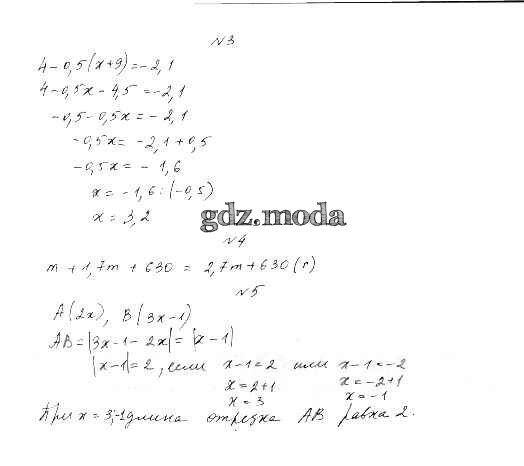 №3
4-0,5(x+9)=-2,1
4-0,5x-4,5=-2,1
-0,5-0,5x=-2,1
-0,5x=-2,1+0,5
-0,5x=-1,6
x=-1,6:(-0,5)
x=3,2
gdz.moda
№4
m+1,7m+630=2,7m+630(г)
№5
A(2x), B(3x-1)
AB=|3x-1-2x|=|x-1|
|x-1|=2, если x-1=2 или x-1=-2
x=2+1 x=-2+1
x=3 x=-1
При x=3;-1 длина отрезка AB равна 2.